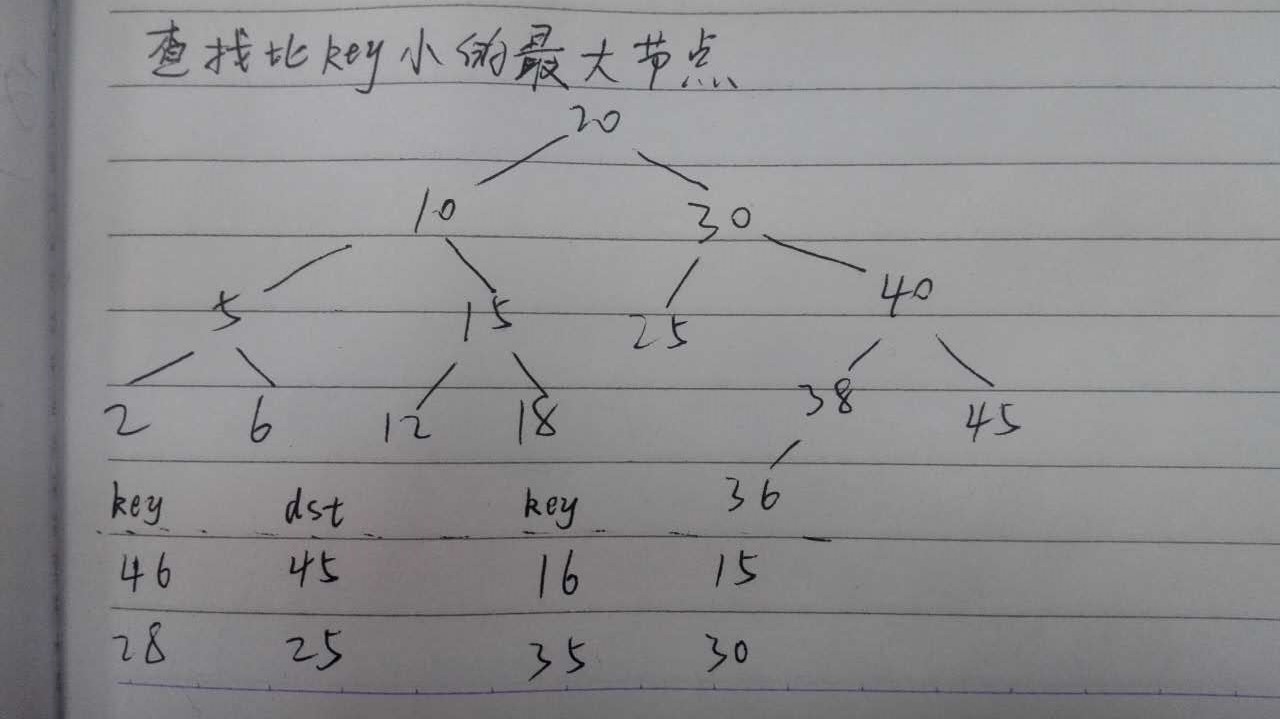 查找比key小的最大节点
20
10 30
40
5 15 25
38
2 6 12 18 45
key dst key 36
46 45 16 15
28 25 35 30